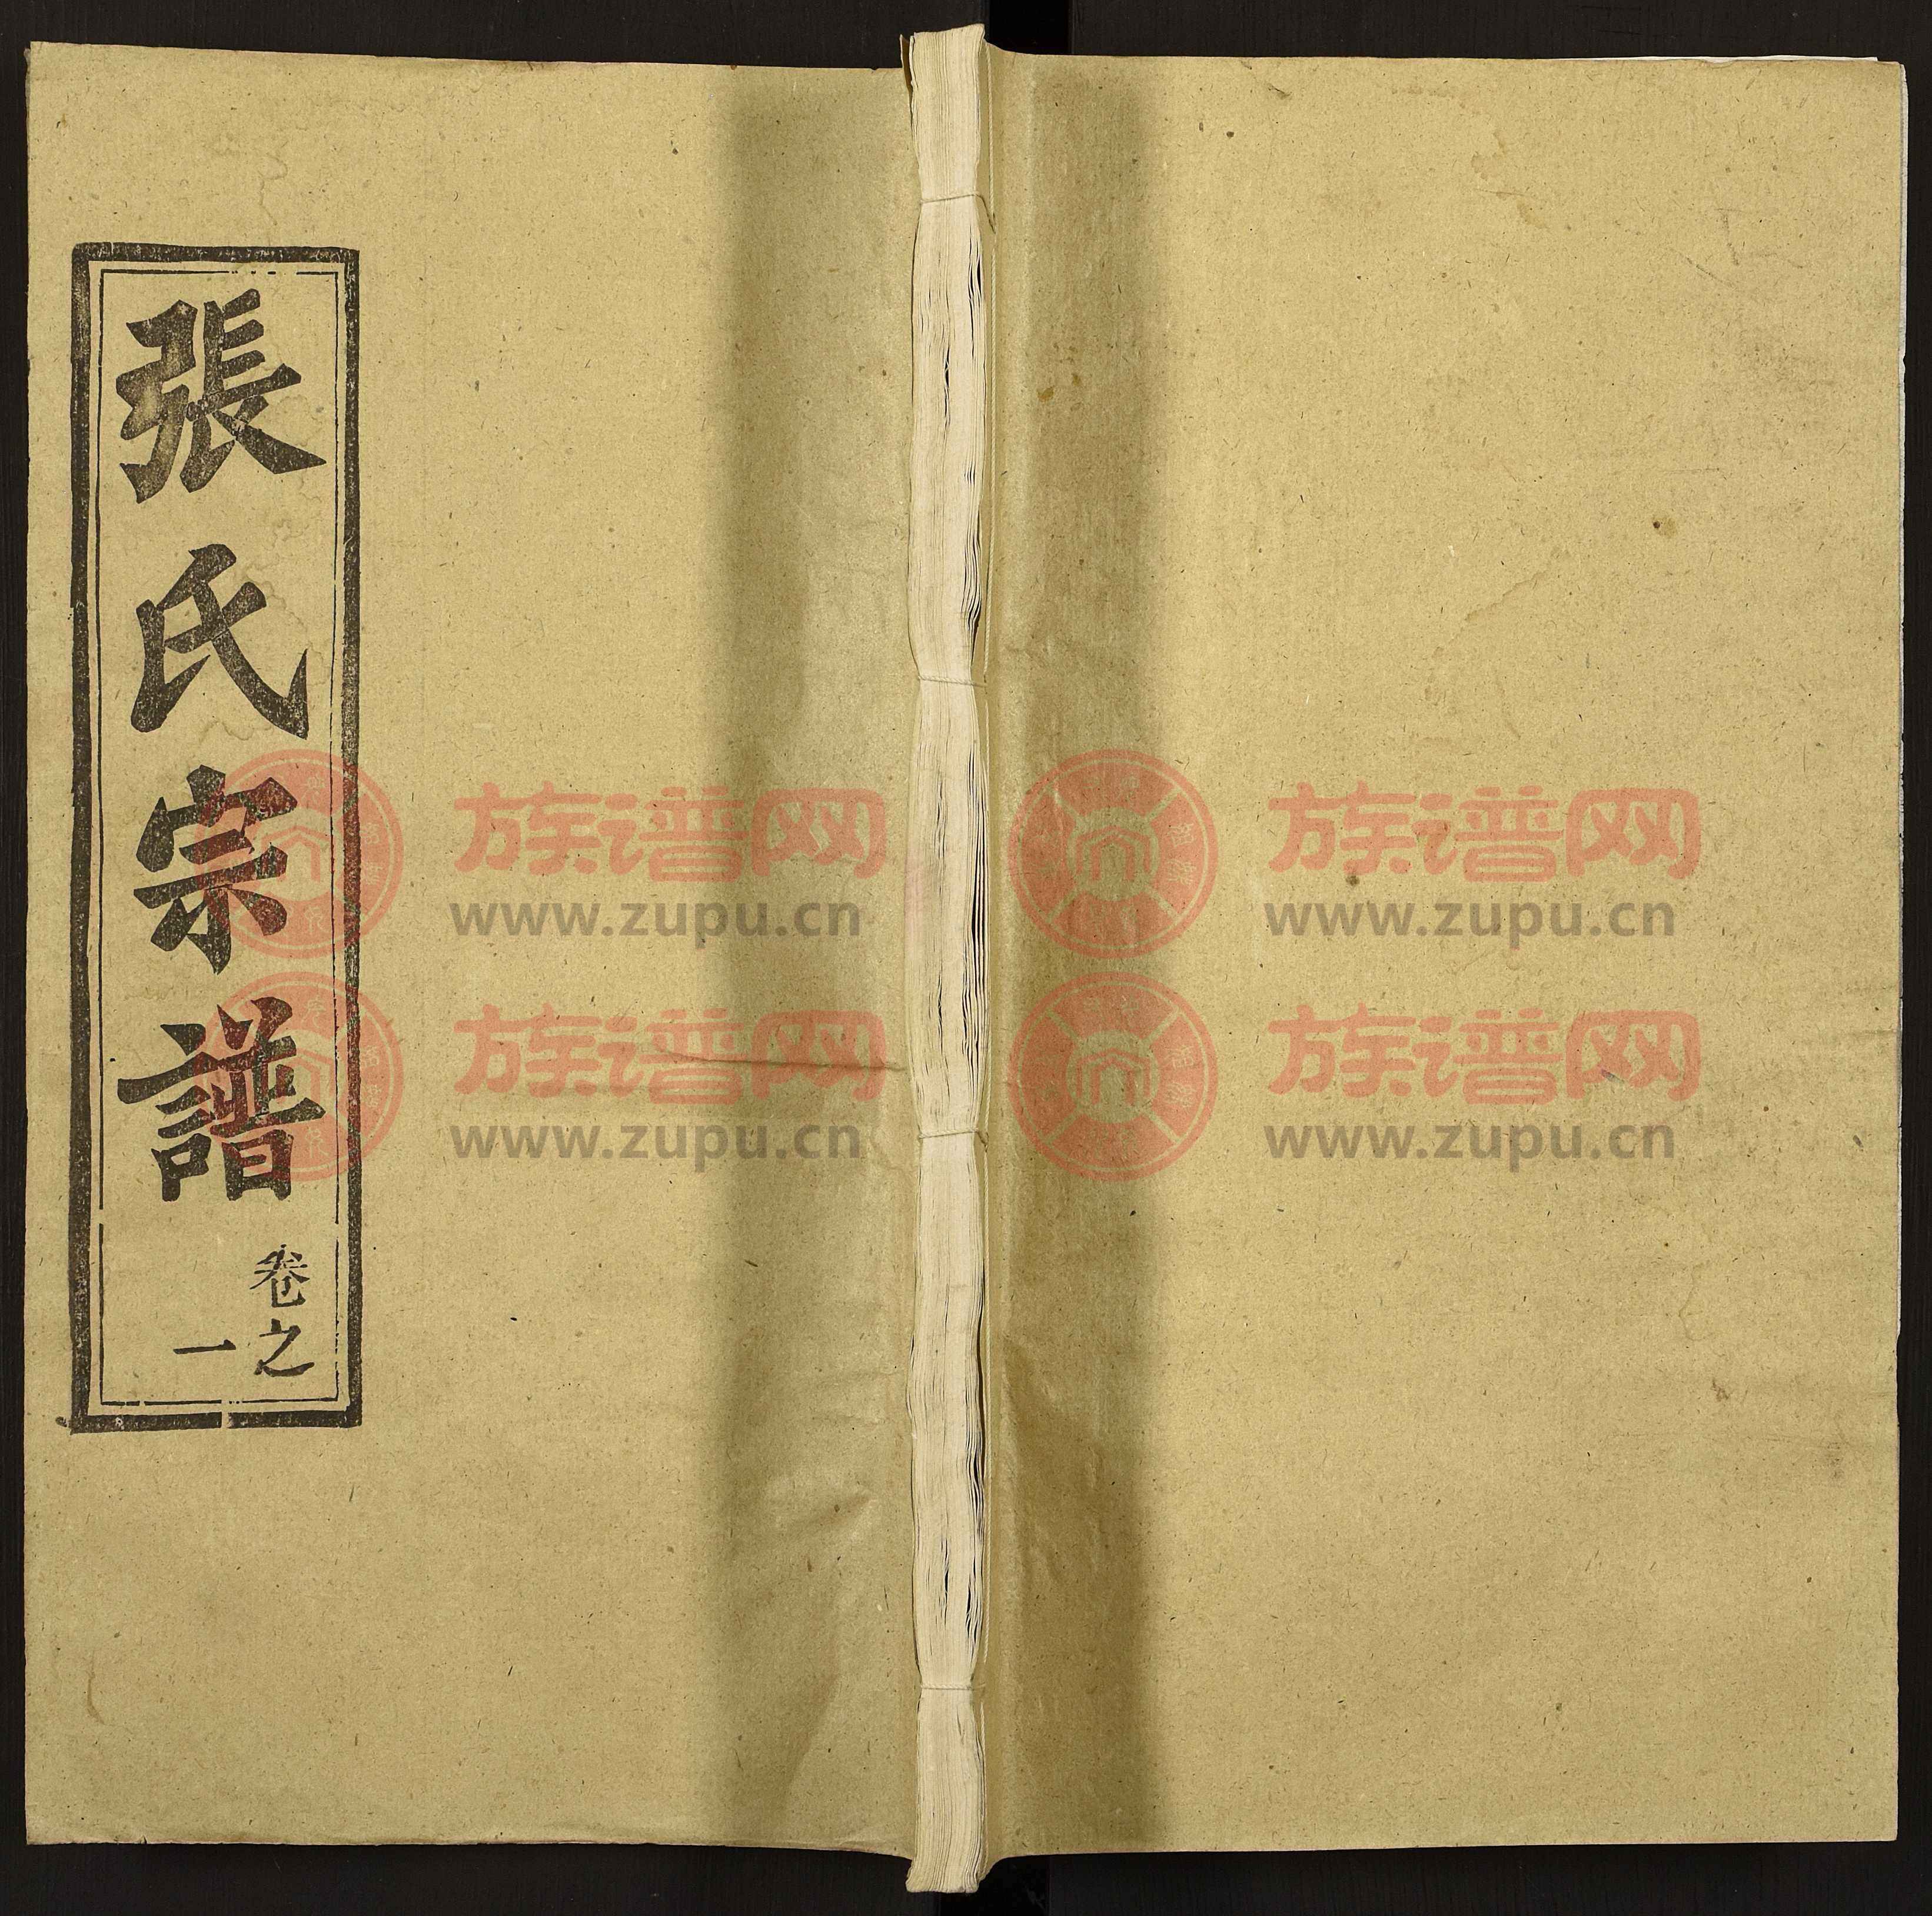 張氏宗譜
卷之
一
族谱网
www.zupu.cn
族谱网
www.zupu.cn
族谱网
www.zupu.cn
族谱网
www.zupu.cn